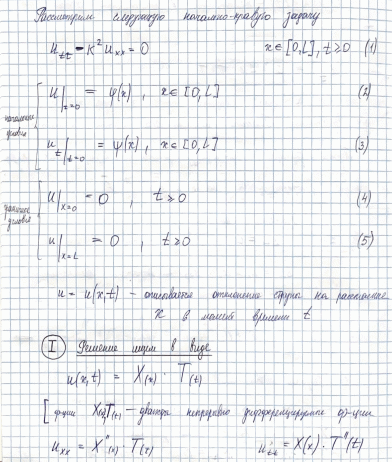 Рассмотрим следующую начально-краевую задачу
u_tt - k² u_xx = 0    x ∈ [0, L], t ≥ 0    (1)
начальные условия
u|_{t=0} = φ(x), x ∈ [0, L]    (2)
u_t|_{t=0} = ψ(x), x ∈ [0, L]    (3)
граничные условия
u|_{x=0} = 0, t ≥ 0    (4)
u|_{x=L} = 0, t ≥ 0    (5)
u = u(x,t) – описывает отклонение струны на расстоянии
x в момент времени t
I Решение ищем в виде
u(x,t) = X(x) · T(t)
[ функции X(x), T(t) – дважды непрерывно дифференцируемые ф-ции
u_xx = X''(x) · T(t)    u_tt = X(x) · T''(t)